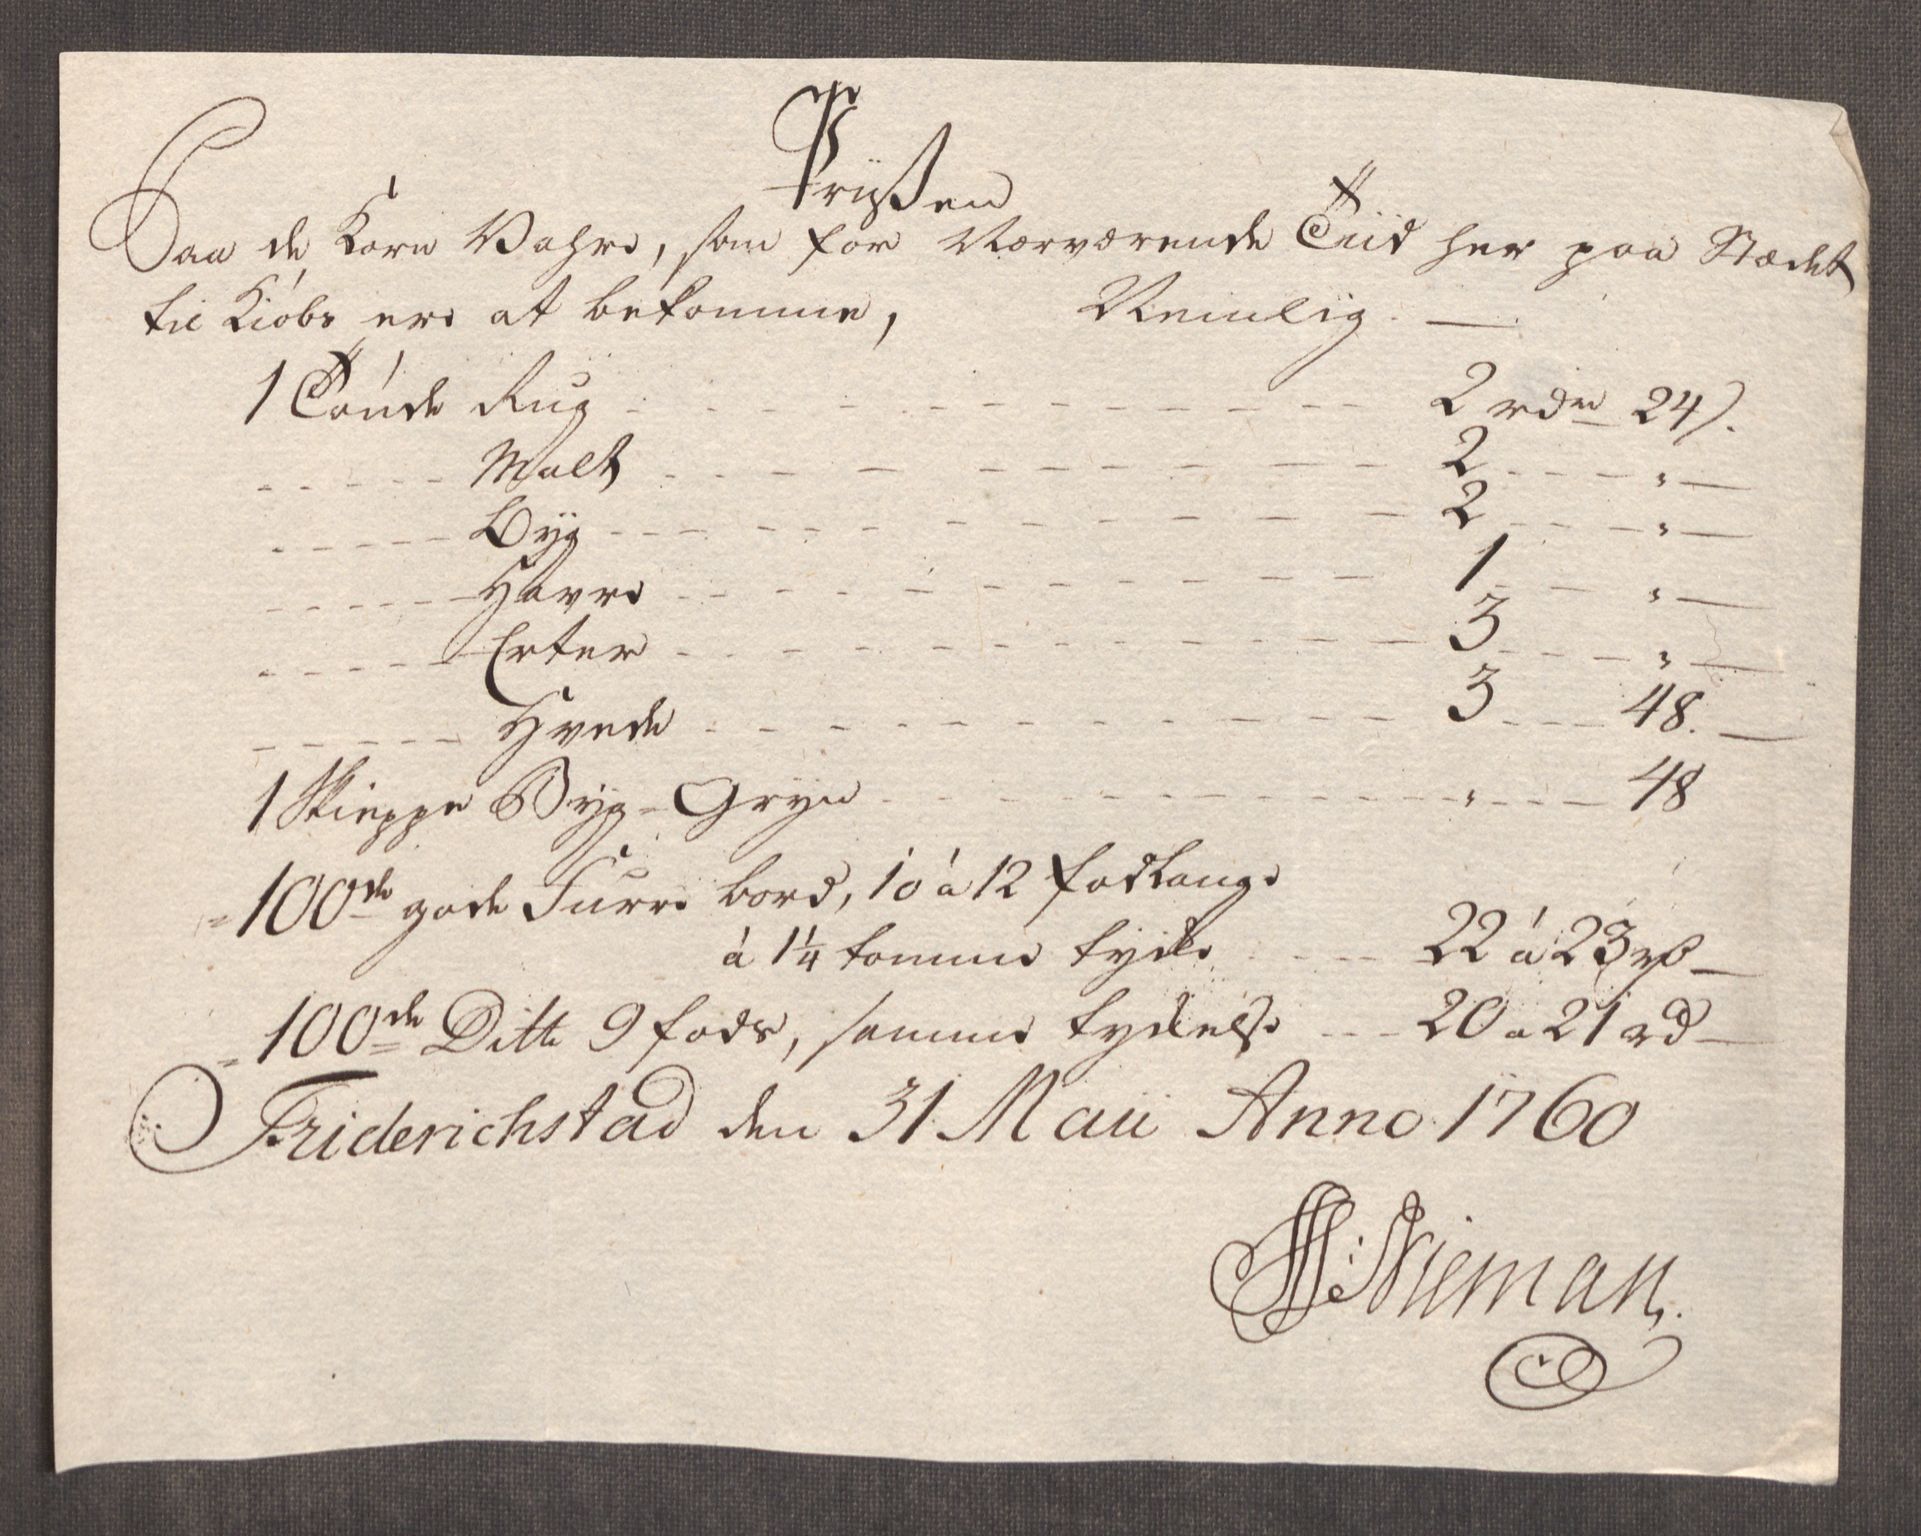 Prüssen
Paa de Korn Vahre, som for Nærværende Tiid her paa Stædet
til Kiøbs ere at bekomme, Nemlig. —
1 Tønde Rug - - - 2 rdr 24 s.
- - - Malt - - - 2 - - - " —
- - - Byg - - - 2 - - - " —
- - - Havre - - - 1 - - - " —
- - - Erter - - - 3 - - - " —
- - - Hvede - - - 3 - - - 48. —
1 Skieppe Byg-Gryn - - - " - - - 48
100de gode Furre bord, 10 á 12 fod lange
á 1 1/4 tomme tycke - - - 22 á 23 rd —
100de Ditto 9 fods, samme tyckelse - - - 20 a 21 rd —
Friderichstad den 31 Maii Anno 1760
H: Nieman.